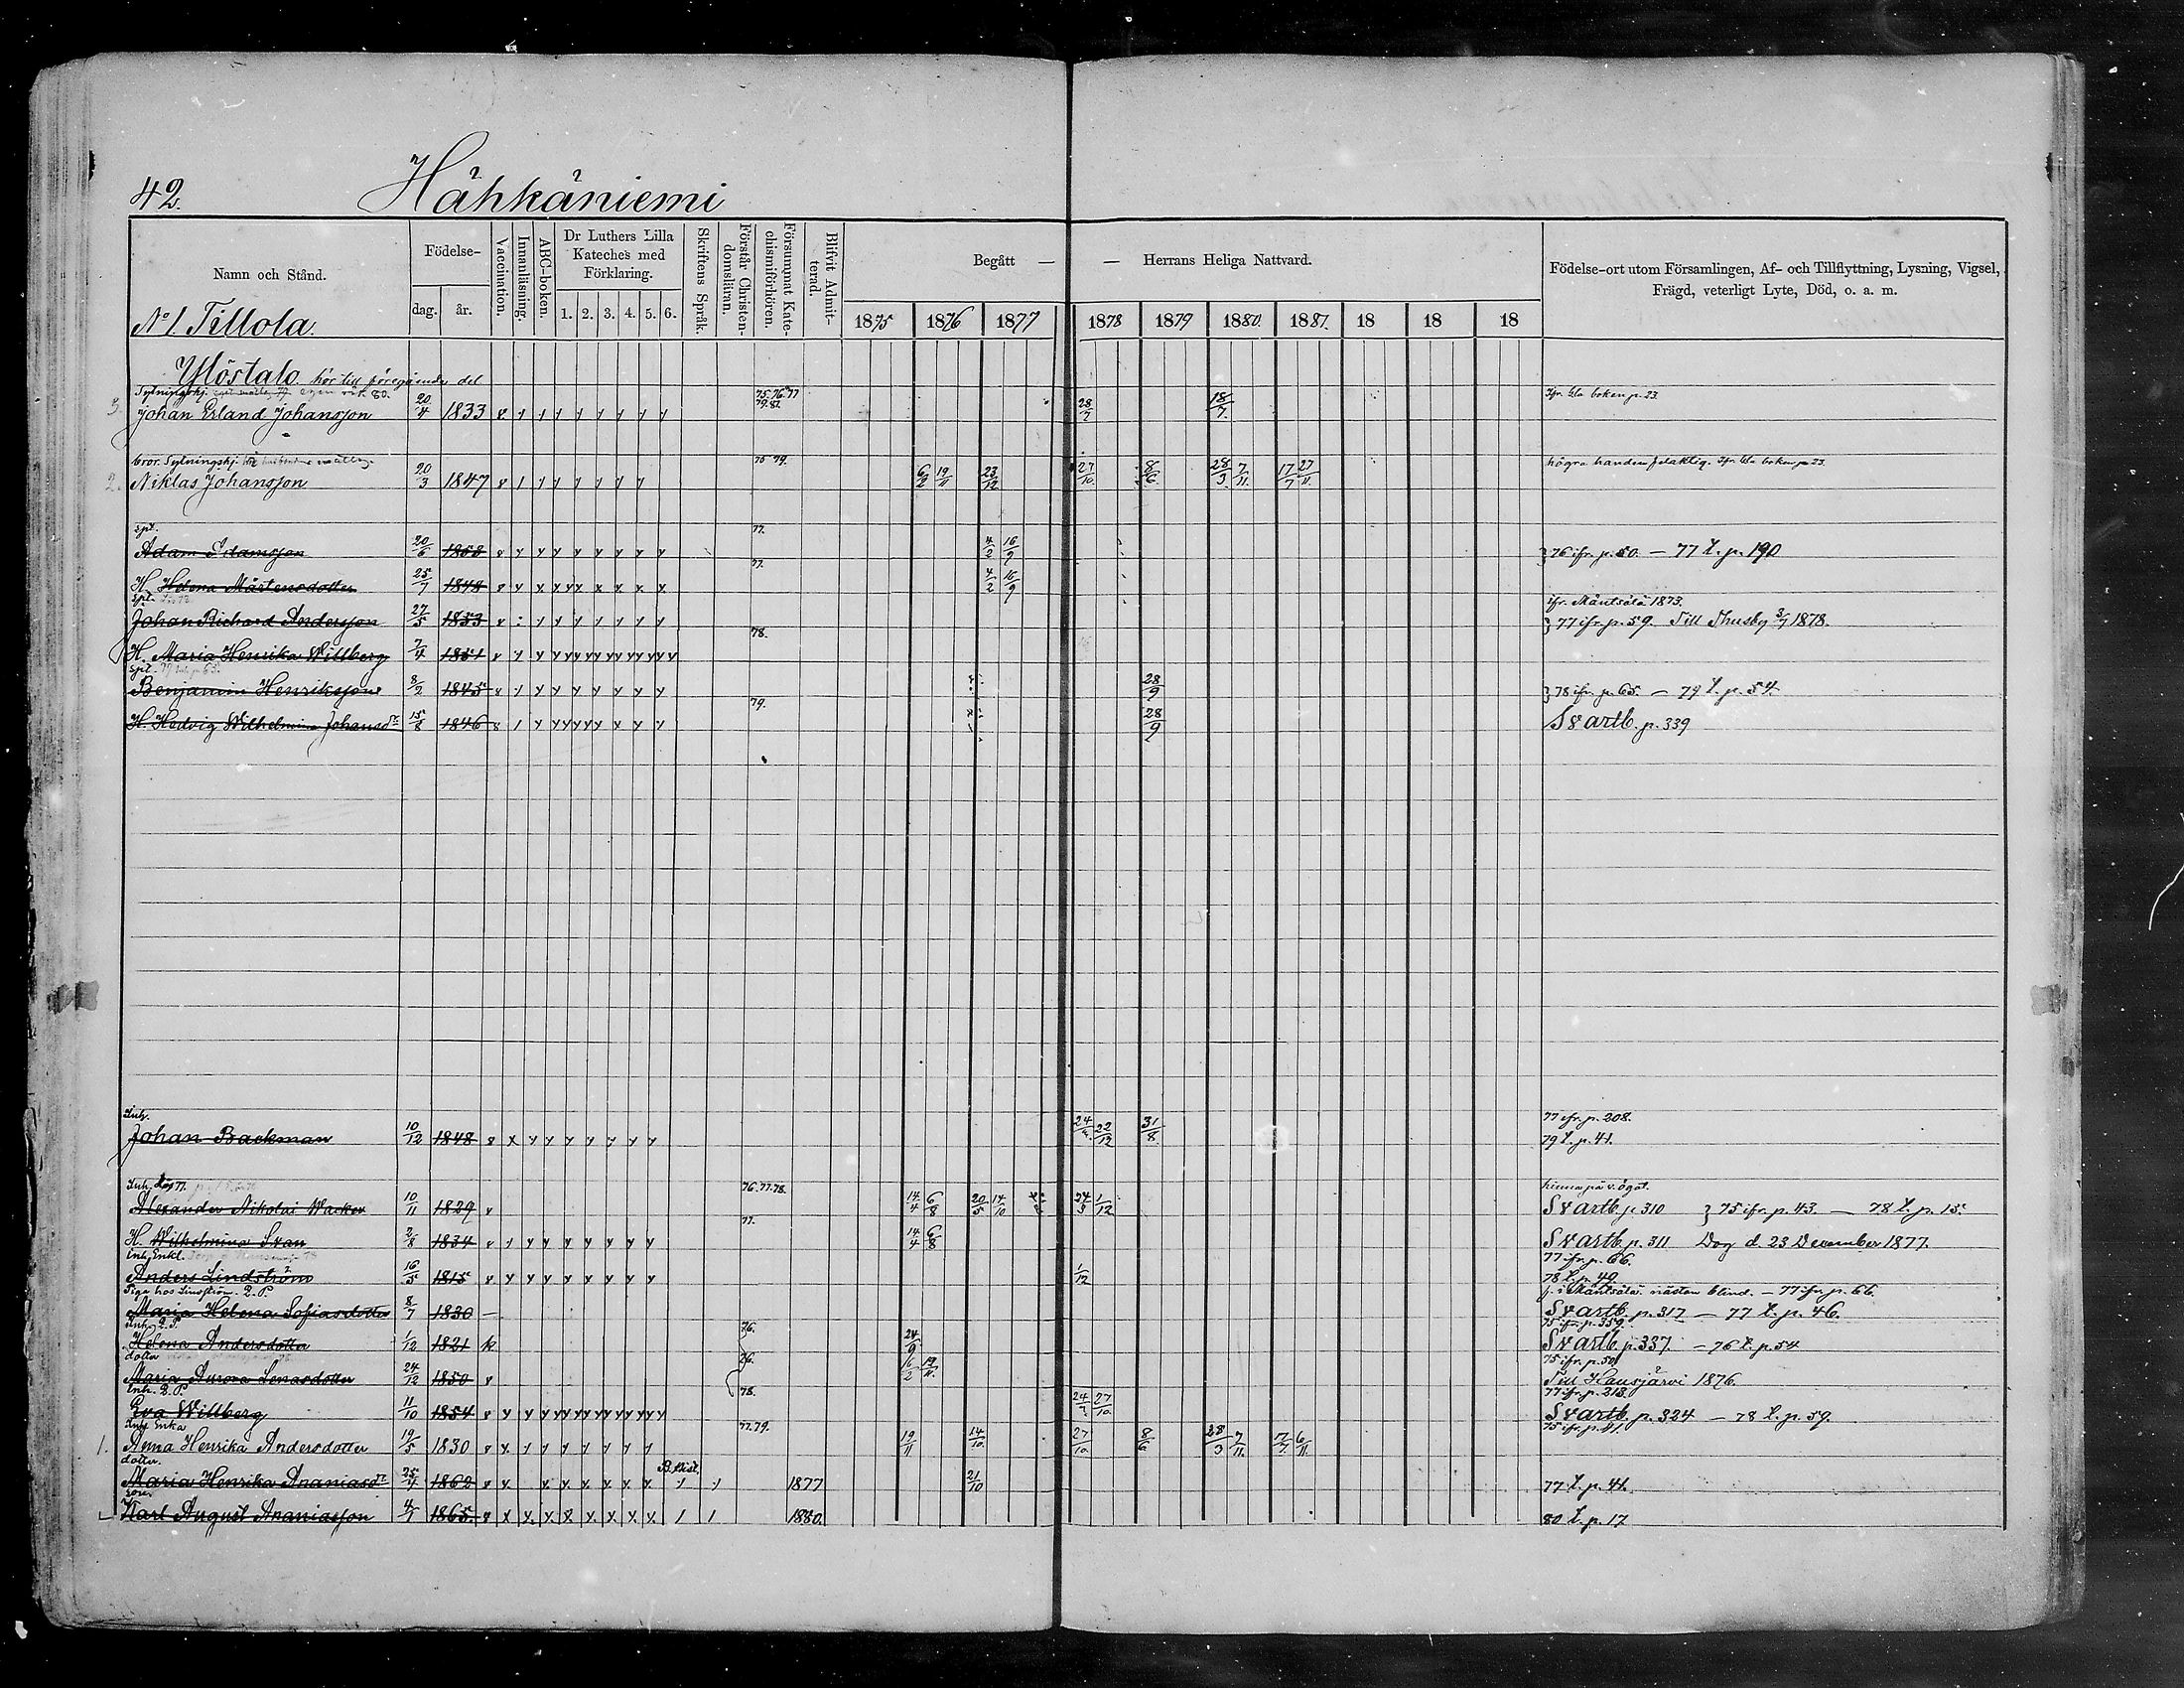 42.
Hähkäniemi
Namn och Stånd.
Födelse-
dag.
år.
Vaccination.
Innanläsning.
ABC-boken.
Dr Luthers Lilla
Kateches med
Förklaring.
1. 2. 3. 4. 5. 6.
Skriftens Språk.
Förstår Christen-
domsläran.
Försummat Kate-
chismiförhören.
Blifvit Admit-
terad.
Begått — — Herrans Heliga Nattvard.
1875 1876 1877 1878 1879 1880. 1881. 18 18 18
Födelse-ort utom Församlingen, Af- och Tillflyttning, Lysning, Vigsel,
Frägd, veterligt Lyte, Död, o. a. m.
No 1. Tillola.
Ylöstalo hör till föregående del
Sytningshj.
75. 76. 77
79. 81.
3. Johan Erland Johansson 20/4 1833 28/7 18/7. boken p. 23.
bror. Sytningshj. 75 79.
2. Niklas Johansson 20/3 1847 6/2 19/11 23/12 27/10. 8/6. 28/3 7/11. 17/7 27/11. högra handen felaktig. boken p. 23.
Spt. 77.
Adam Adamsson 20/6 1858 4/2 16/9 } 76 ifr. p. 50. — 77 t. p. 190
77.
H. Helena Mårtensdotter 25/7 1848 4/2 16/9
Spt. ifr. Mäntsälä 1873.
Johan Richard Andersson 27/5 1853 } 77 ifr. p. 59. Till Thusby 3/7 1878.
78.
H. Maria Henrika Willberg 7/4 1851
Spt.
Benjamin Henriksson 8/2 1845 28/9 } 78 ifr. p. 65. — 79 t. p. 54.
79.
H. Hedvig Wilhelmina Johansdr 15/8 1846 28/9 Svartb. p. 339
Inh. 77 ifr. p. 208.
Johan Backman 10/12 1848 24/2. 22/12 31/8. 79 t. p. 41.
Inh. 76. 77. 78. hinna på v. ögat.
Alexander Nikolai Wacker 10/11 1829 14/4 6/8 20/5 14/10 24/3 1/12 Svartb p. 310 } 75 ifr. p. 43. — 78 t. p. 15.
77.
H. Wilhelmina Svan 2/8 1834 14/4 6/8 Svartb. p. 311 Dog d. 23 December 1877.
Inh. Enkl. 77 ifr. p. 66.
Anders Lindström 16/5 1815 1/12 78 t. p. 49.
Piga hos Lindström. 2. P. f. i Mäntsälä. nästan blind. — 77 ifr. p. 66.
Maria Helena Sofiasdotter 8/7 1830 — Svartb. p. 317 — 77 t. p. 46.
Inh. 2. P. 76. 75 ifr. p. 359.
Helena Andersdotter 1/12 1821 24/9 Svartb. p. 337. — 76 t. p. 54
dotter 76. 75 ifr. p. 50
Maria Aurora Lenasdotter 24/12 1850 6/2 19/11. Till Hausjärvi 1876.
Inh. 2. P. 78. 77 ifr. p. 213.
Eva Willberg 11/10 1854 24/2. 27/10. Svartb. p. 324 — 78 t. p. 59.
Inh. Enka 77. 79. 75 ifr. p. 41.
1. Anna Henrika Andersdotter 19/5 1830 19/11 14/10. 27/10. 8/6. 28/3 7/11. 17/7. 6/11.
dotter. B. hist.
Maria Henrika Ananiasdr 25/7 1862 1877 21/10 77 t. p. 41.
son
Karl August Ananiasson 4/7 1865. 1880. 80 t. p. 17